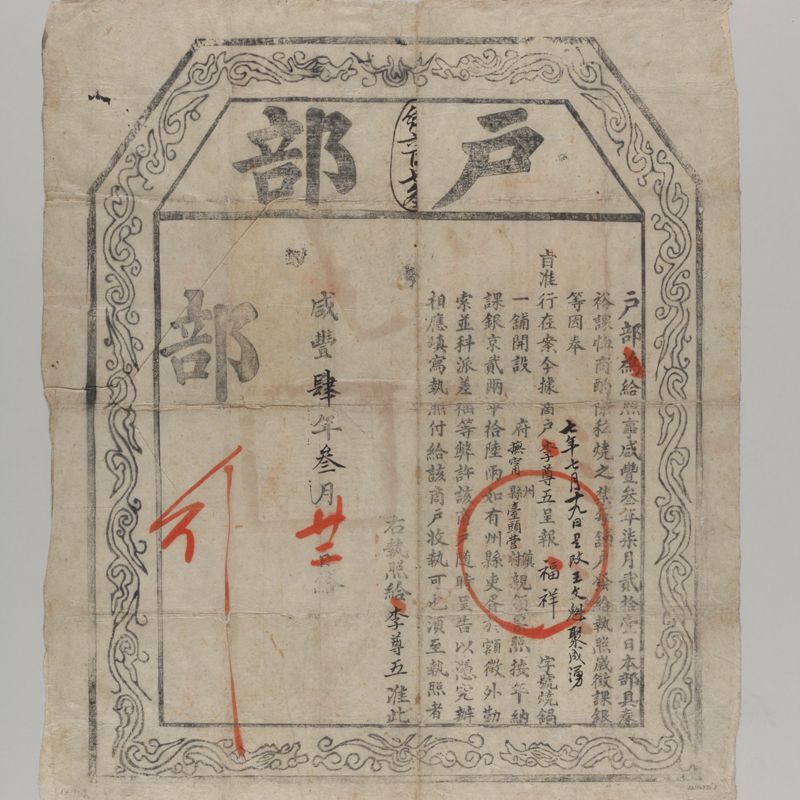 戶部
部
戶部為給照事咸豐叁年柒月貳拾壹日本部具奏
裕課恤商酌除私燒之禁每鍋戶發給執照歲徵課銀
等因奉
旨准行在案今據商戶李尊五呈報福祥字號燒鍋
一舖開設 府 撫甯州縣臺頭營鎮村親領票照按年納
課銀京貳兩平拾陸兩如有州縣吏胥於額徵外勒
索並科派差徭等弊許該商戶隨時呈告以憑究辦
相應填寫執照付給該商戶收執可也須至執照者
七年七月十九日呈改王文魁聚成湧
右執照給李尊五准此
咸豐肆年叁月廿二日給
行